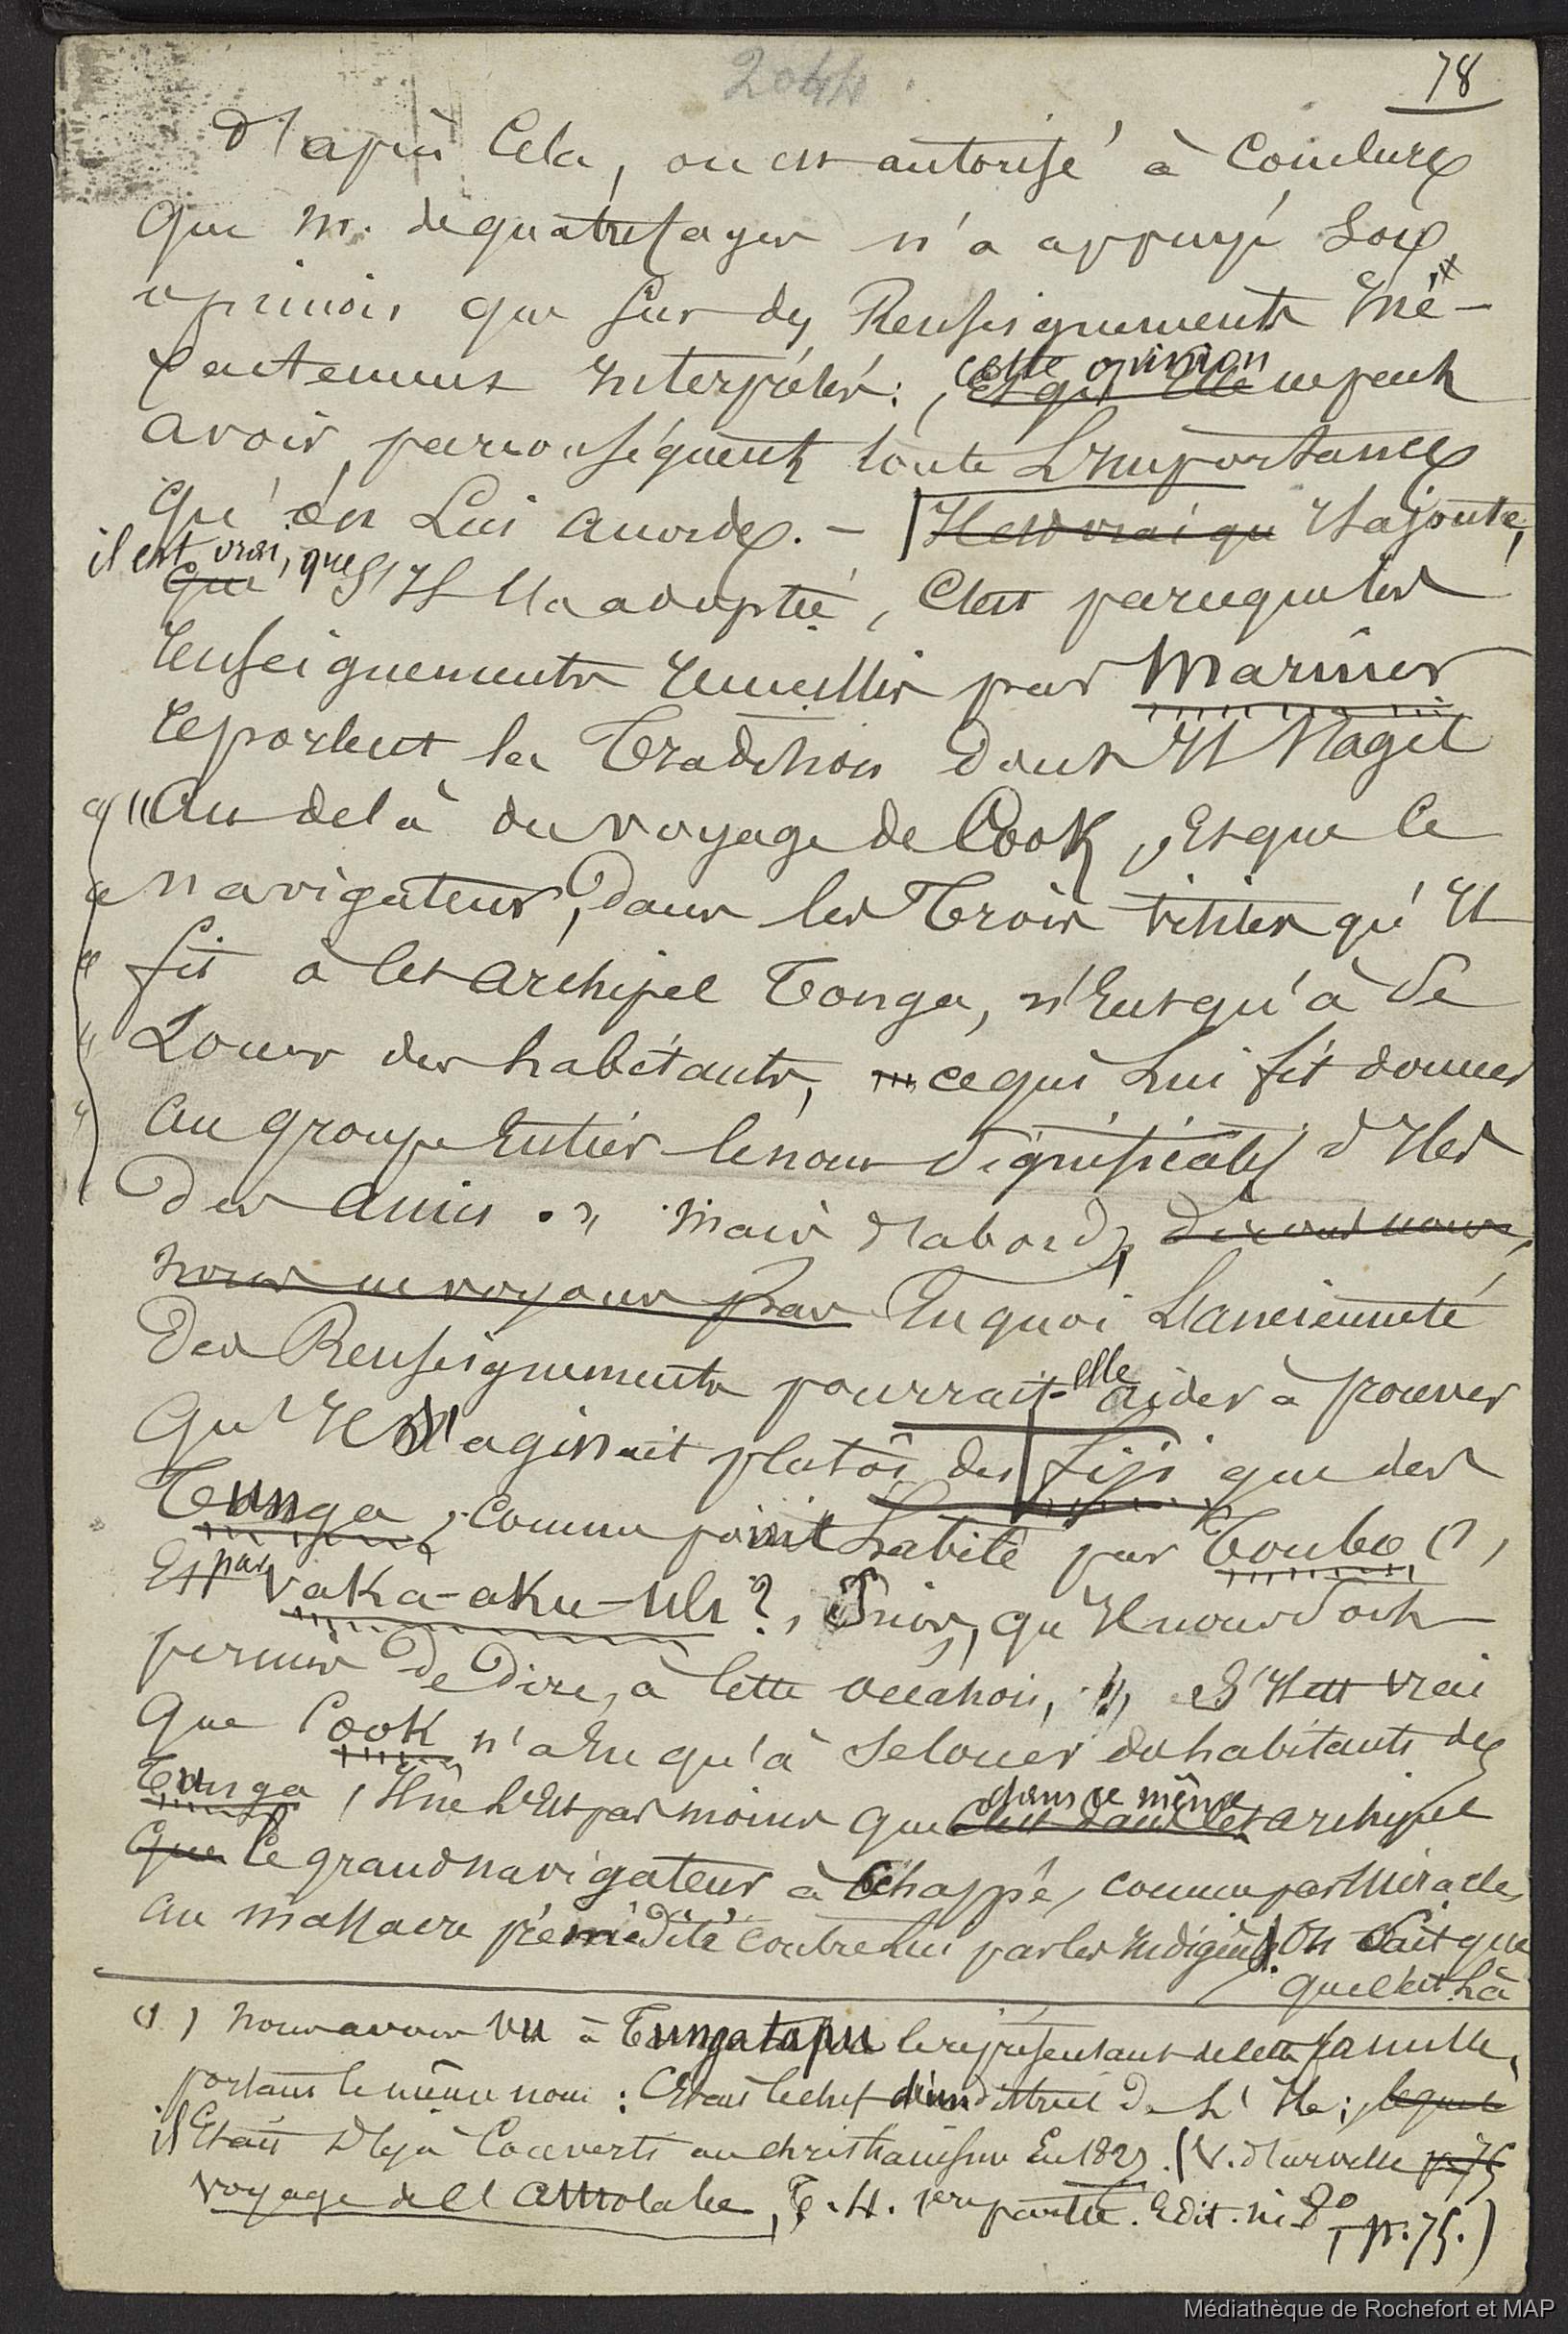 2044
78
D'après cela, on est autorisé à conclure
que M. de quatrefages n'a appuyé son
opinion que sur des Renseignements iné-
xactement interprétés : cette opinion ~~et qu'elle~~ ne peut
avoir, par conséquent, toute l'importance
qu'on lui accorde. — ~~Il est vrai qu~~ Il ajoute,
il est vrai, que ~~que~~ s'il l'a adoptée, c'est parceque les
renseignements recueillis par Mariner
reportent la tradition dont il s'agit
« au delà du voyage de Cook, et que ce
« navigateur, dans les trois visites qu'il
« fit à cet archipel Tonga, n'eut qu'à se
« louer des habitants, ce qui lui fit donner
« au groupe entier le nom significatif d'Iles
des amis. » Mais d'abord, ~~dirons nous,~~
~~nous ne voyons pas~~ En quoi l'ancienneté
des Renseignements pourrait-elle aider à prouver
qu'il s'agissait plutôt des Fiji que des
Tunga, comme point habité par Toubo (1),
Et par vaka-aku-uli ? Puis, qu'il nous soit
permis de dire, à cette occasion, s'il est vrai
que Cook n'a eu qu'à se louer des habitants des
Tunga, il ne l'est pas moins que dans ce même ~~c'est dans cet~~ archipel
~~que~~ le grand navigateur a échappé, comme par miracle,
au massacre prémédité contre lui par les indigènes. On sait que
que c'est là
(1) nous avons vu à Tungatapu le représentant de cette famille,
portant le même nom : C'etait le chef d'un district de l'Ile ; ~~lequel~~
il Etait déjà converti au christianisme En 1827. (V. d'urville ~~p. 75~~
voyage de l'Astrolabe, T. 4. 1ere partie. Edit. in 8°, p. 75.)
Médiathèque de Rochefort et MAP